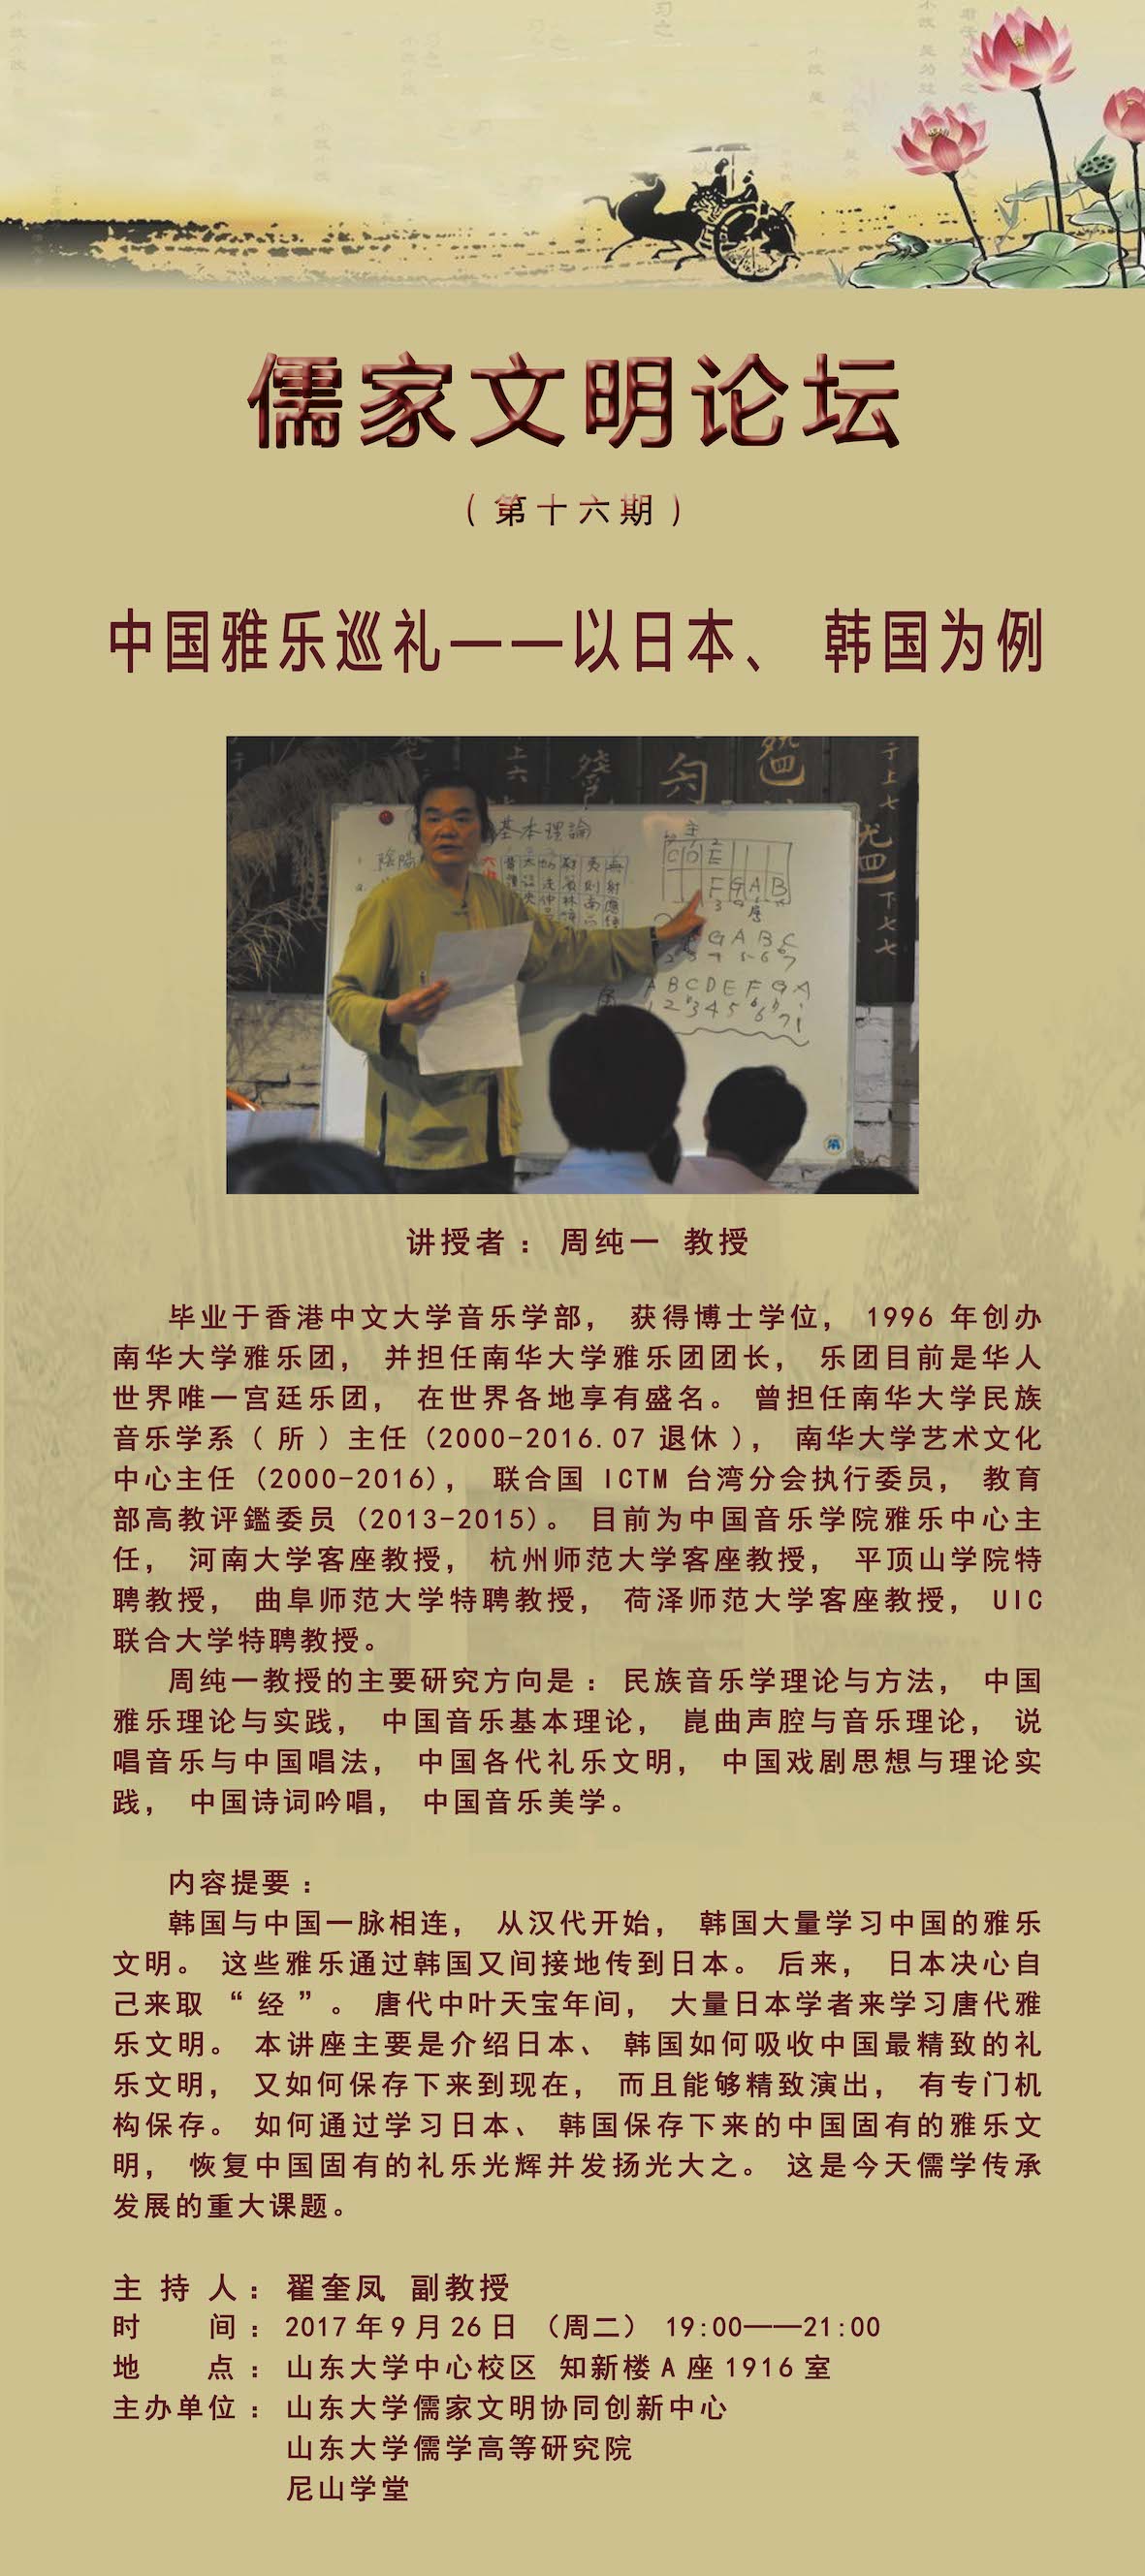 儒家文明论坛
（第十六期）
中国雅乐巡礼——以日本、韩国为例
基本理論
陰陽
C D E
F G A B
G A B C
A B C D E F G A
讲授者：周纯一 教授
毕业于香港中文大学音乐学部，获得博士学位，1996 年创办
南华大学雅乐团，并担任南华大学雅乐团团长，乐团目前是华人
世界唯一宫廷乐团，在世界各地享有盛名。曾担任南华大学民族
音乐学系（所）主任（2000-2016.07 退休），南华大学艺术文化
中心主任（2000-2016），联合国 ICTM 台湾分会执行委员，教育
部高教评鑑委员（2013-2015）。目前为中国音乐学院雅乐中心主
任，河南大学客座教授，杭州师范大学客座教授，平顶山学院特
聘教授，曲阜师范大学特聘教授，荷泽师范大学客座教授，UIC
联合大学特聘教授。
周纯一教授的主要研究方向是：民族音乐学理论与方法，中国
雅乐理论与实践，中国音乐基本理论，崑曲声腔与音乐理论，说
唱音乐与中国唱法，中国各代礼乐文明，中国戏剧思想与理论实
践，中国诗词吟唱，中国音乐美学。
内容提要：
韩国与中国一脉相连，从汉代开始，韩国大量学习中国的雅乐
文明。这些雅乐通过韩国又间接地传到日本。后来，日本决心自
己来取“经”。唐代中叶天宝年间，大量日本学者来学习唐代雅
乐文明。本讲座主要是介绍日本、韩国如何吸收中国最精致的礼
乐文明，又如何保存下来到现在，而且能够精致演出，有专门机
构保存。如何通过学习日本、韩国保存下来的中国固有的雅乐文
明，恢复中国固有的礼乐光辉并发扬光大之。这是今天儒学传承
发展的重大课题。
主 持 人：翟奎凤 副教授
时 间：2017 年 9 月 26 日 （周二） 19:00——21:00
地 点：山东大学中心校区 知新楼 A 座 1916 室
主办单位：山东大学儒家文明协同创新中心
山东大学儒学高等研究院
尼山学堂